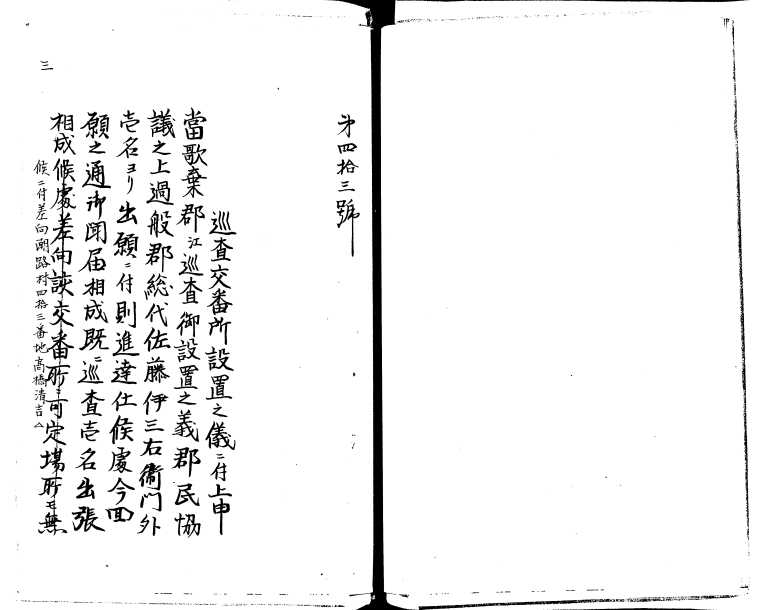 第四拾三號
巡査交番所設置之儀ニ付上申
當歌棄郡江巡査御設置之義郡民協
議之上過般郡総代佐藤伊三右衞門外
壱名ヨリ出願ニ付則進達仕候處今回
願之通御聞届相成既ニ巡査壱名出張
相成候處差向該交番所ニ可定場所モ無
候ニ付差向潮路村四拾三番地髙橋清吉
三